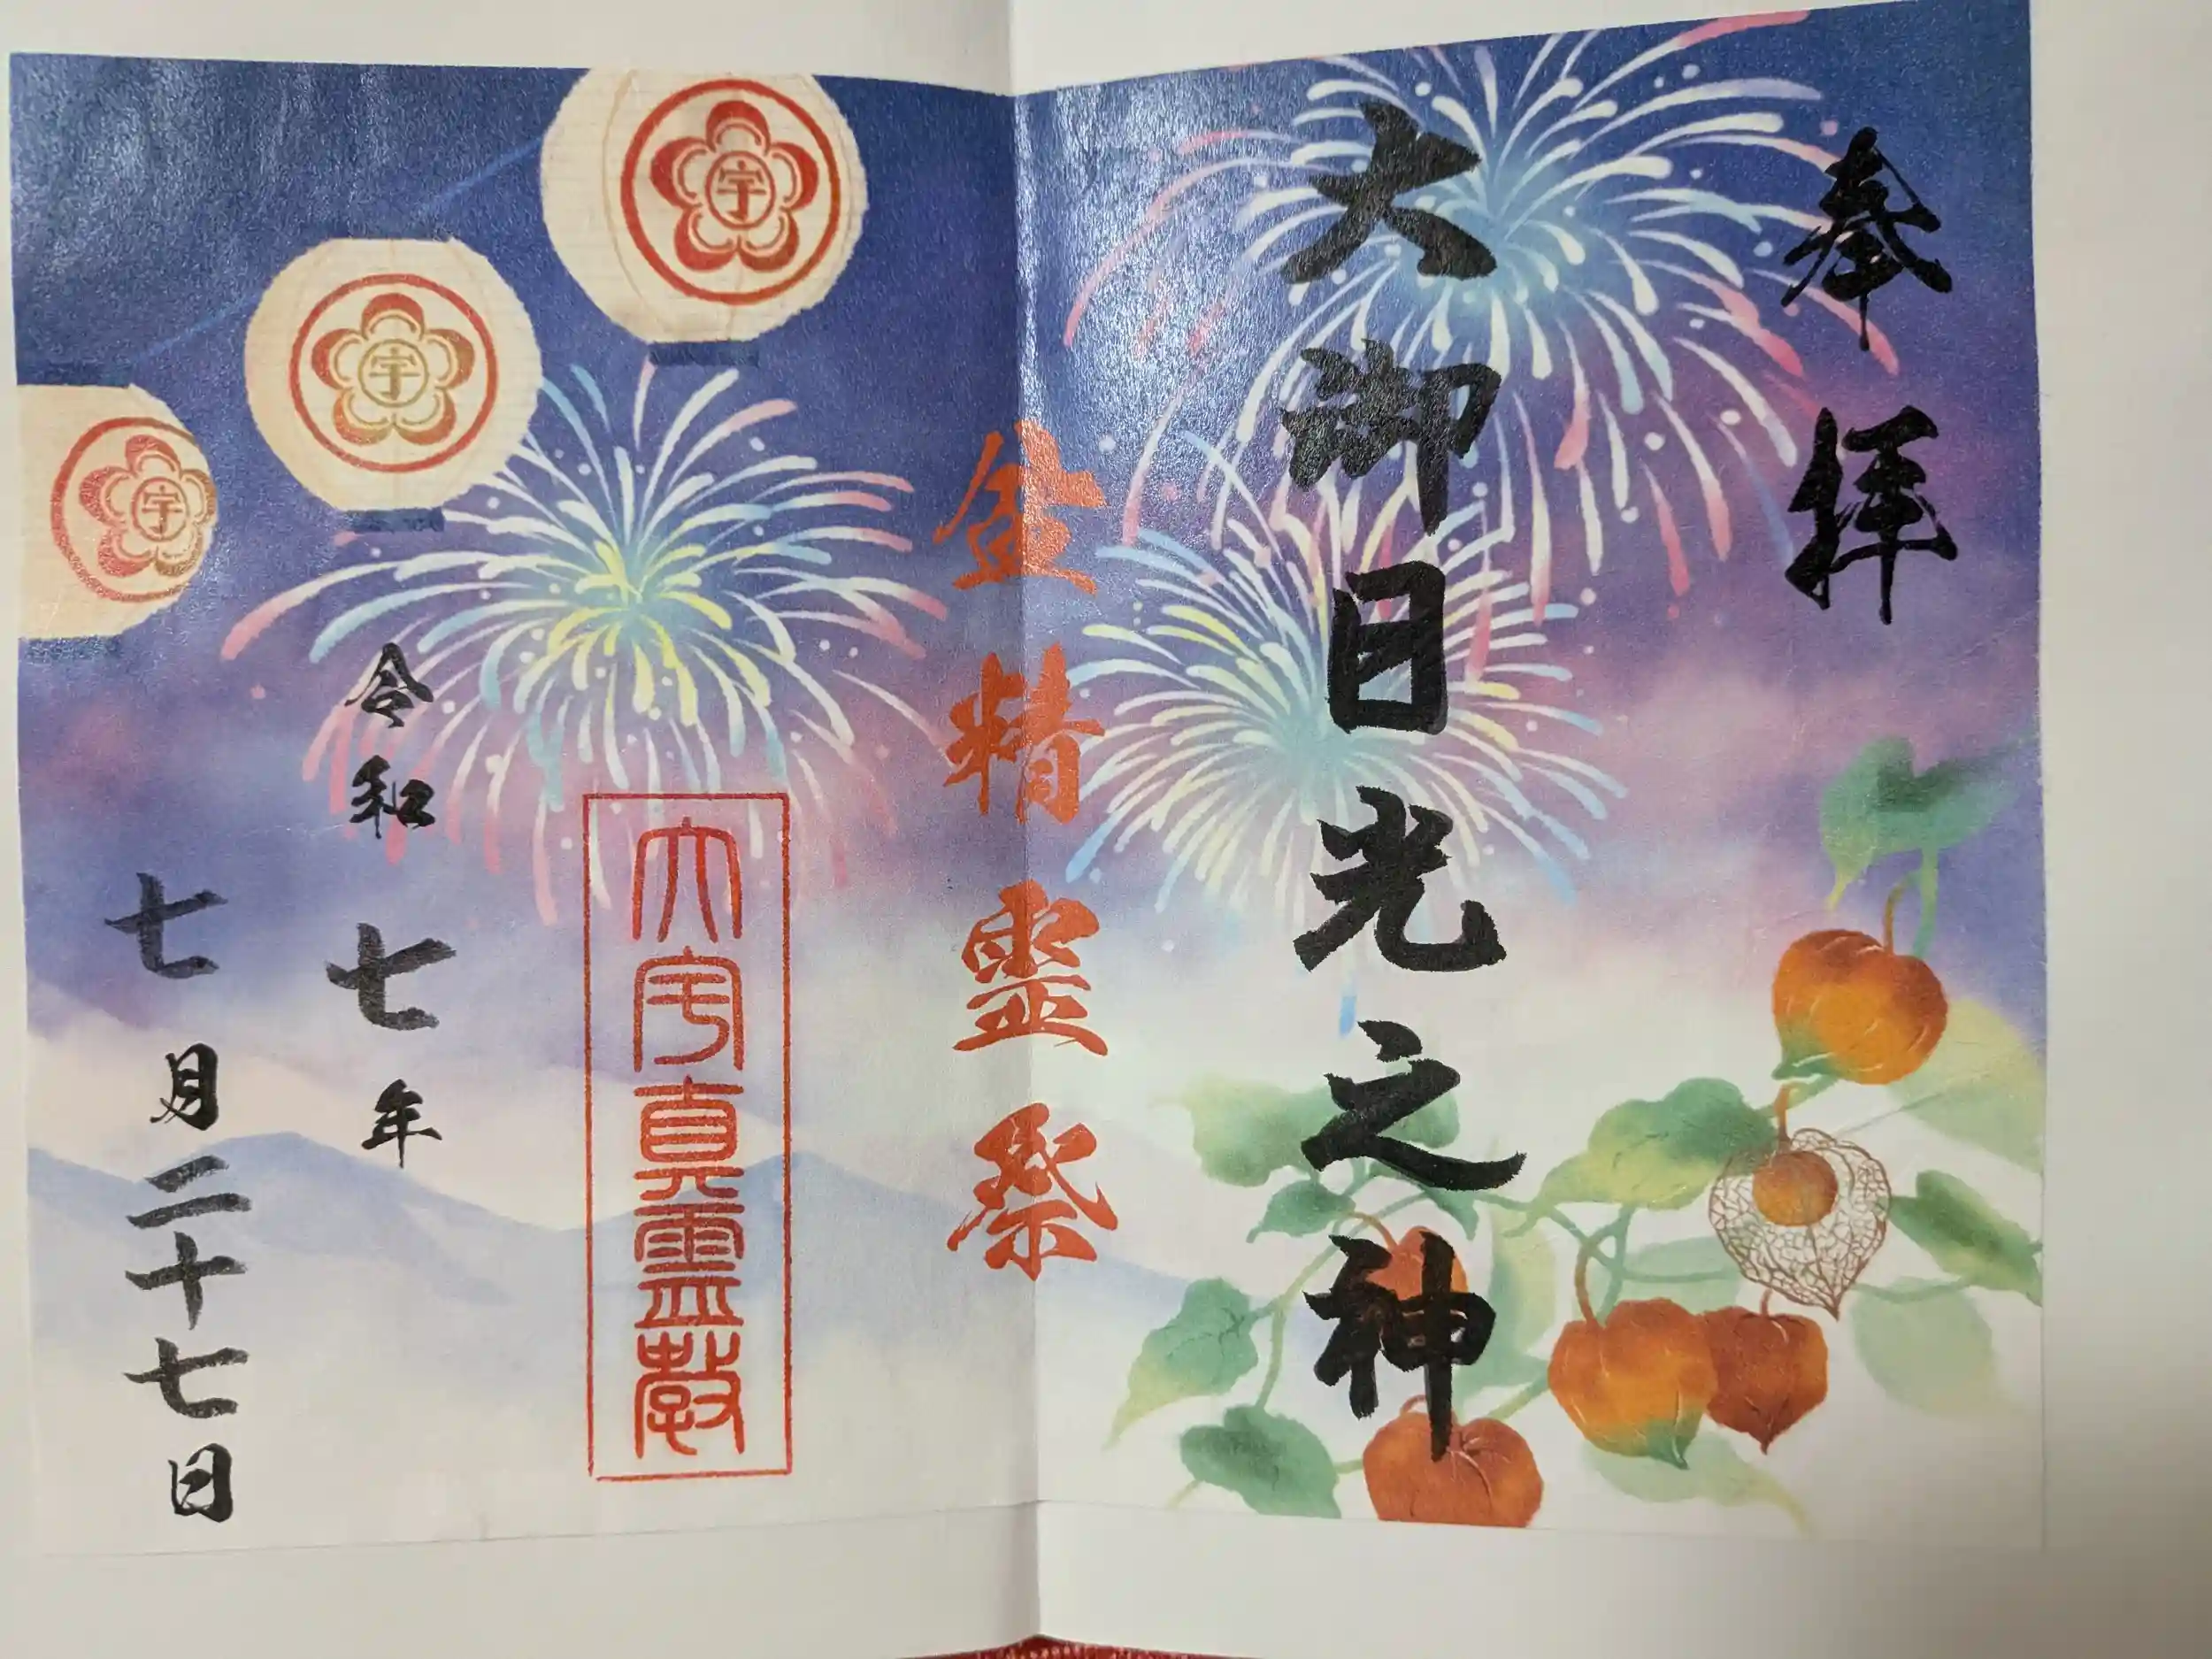 奉拝
大御目光之神
盆精霊祭
大宇真霊教
令和七年
七月二十七日
宇
宇
宇